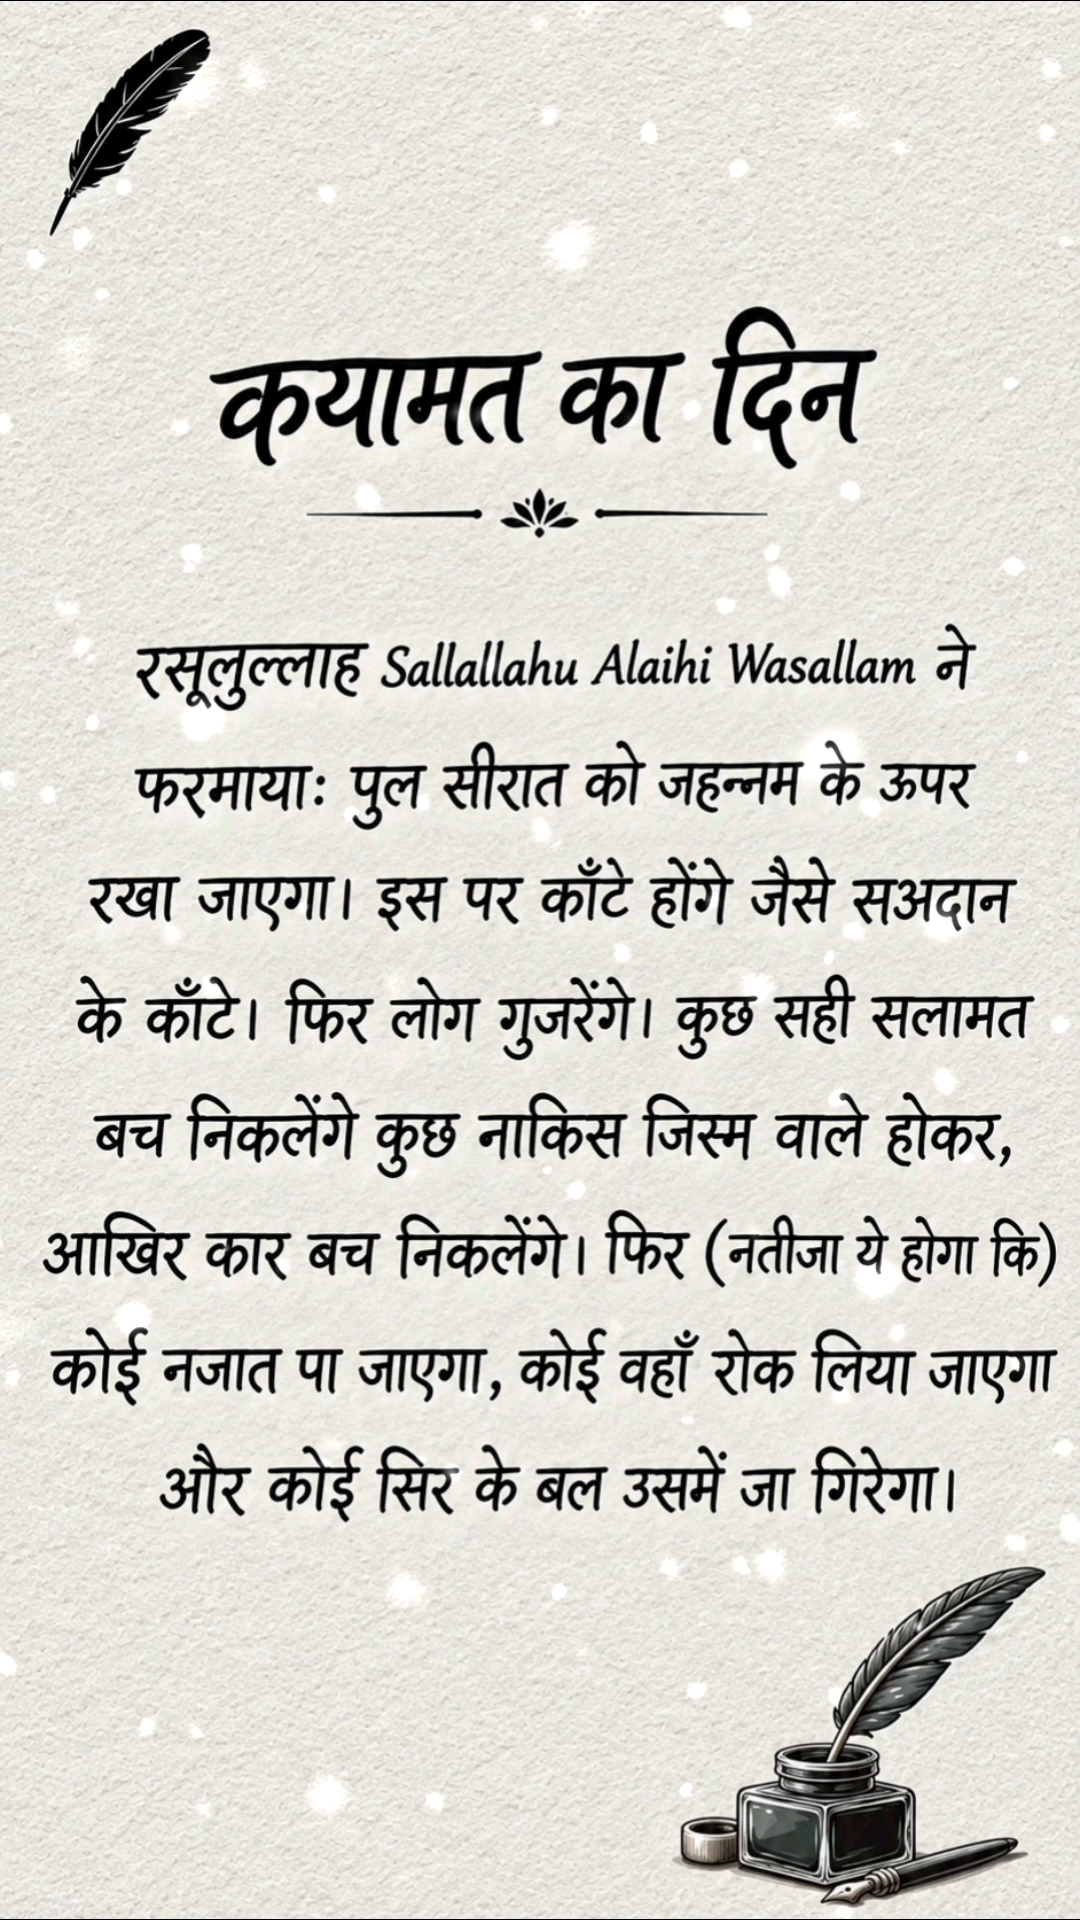 कयामत का दिन
रसूलुल्लाह Sallallahu Alaihi Wasallam ने
फरमायाः पुल सीरात को जहन्नम के ऊपर
रखा जाएगा। इस पर काँटे होंगे जैसे सअदान
के काँटे। फिर लोग गुजरेंगे। कुछ सही सलामत
बच निकलेंगे कुछ नाकिस जिस्म वाले होकर,
आखिर कार बच निकलेंगे। फिर (नतीजा ये होगा कि)
कोई नजात पा जाएगा, कोई वहाँ रोक लिया जाएगा
और कोई सिर के बल उसमें जा गिरेगा।